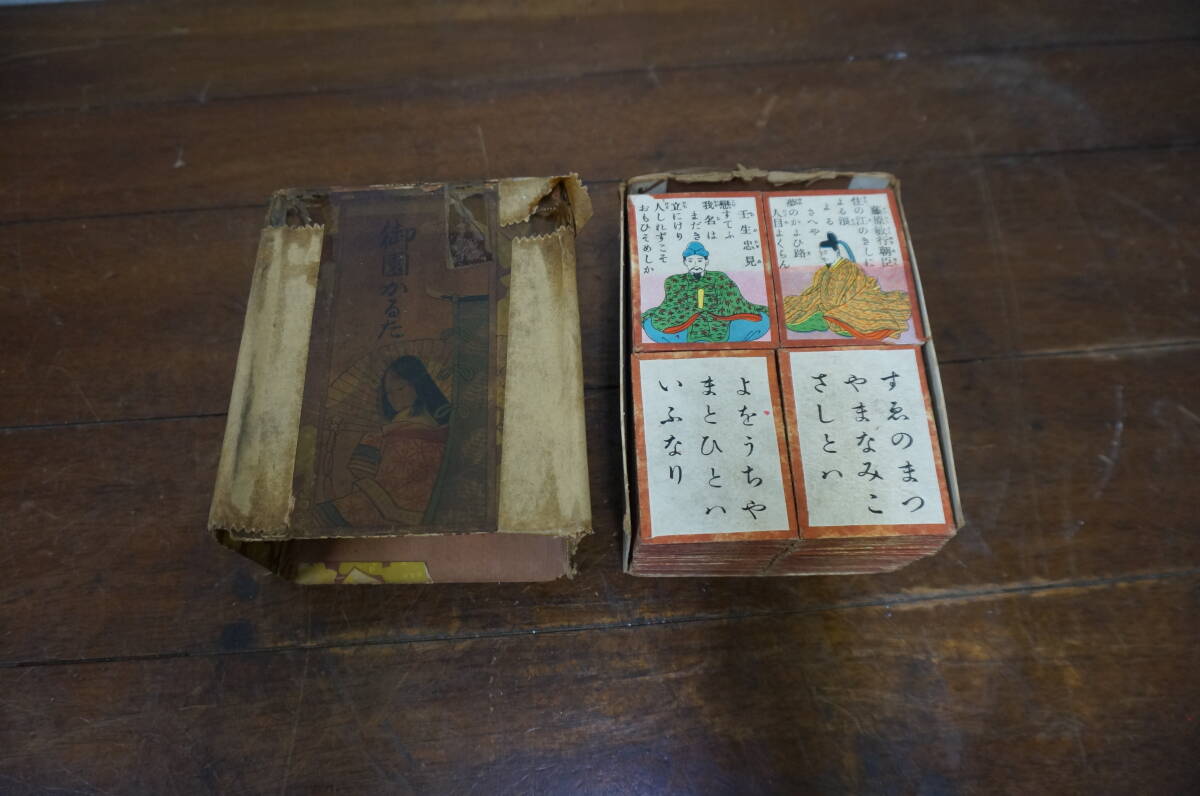 御園かるた
壬生忠見
戀すてふ
我名は
まだき
立にけり
人しれずこそ
おもひそめしか
藤原敏行朝臣
住の江のきしに
よる浪
よる
さへや
夢のかよひ路
人目よくらん
よをうちや
まとひとハ
いふなり
すゑのまつ
やまなみこ
さしとハ